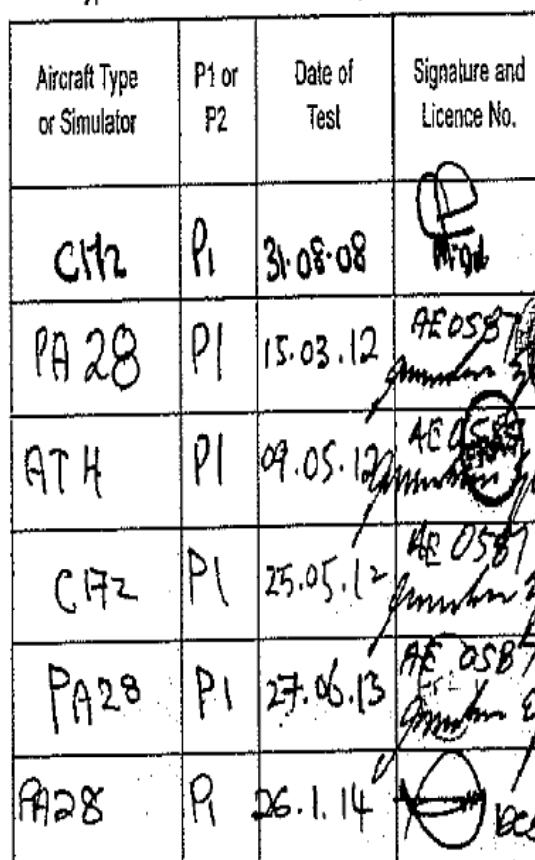 Aircraft Type or Simulator P1 or P2 Date of Test Signature and Licence No.
C172 P1 31.08.08
PA 28 P1 15.03.12 AE0587
ATH P1 09.05.12 AE0587
C172 P1 25.05.12 AE 0587
PA28 P1 27.06.13 AE 0587
PA28 P1 26.1.14